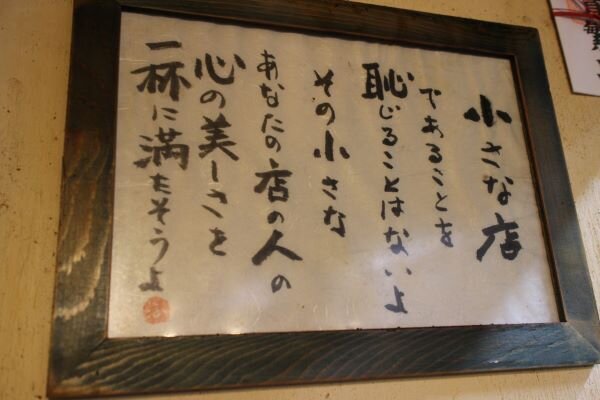 小さな店
であることを
恥じることはないよ
その小さな
あなたの店の人の
心の美しさを
一杯に満たそうよ